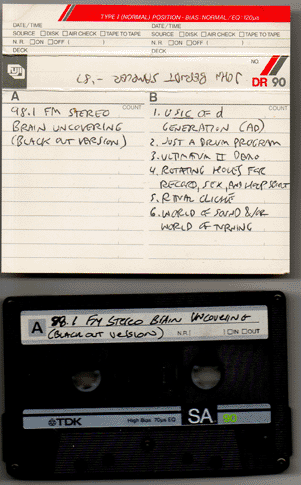 TYPE I (NORMAL) POSITION · BIAS: NORMAL / EQ: 120µs
DATE/TIME DATE/TIME
SOURCE □DISK □AIR CHECK □TAPE TO TAPE SOURCE □DISK □AIR CHECK □TAPE TO TAPE
N.R. □ON □OFF N.R. □ON □OFF
DECK DECK
JOHN
NO.
FUJI
DR 90
A COUNT
98.1 FM STEREO
BRAIN UNCOVERING
(BLACK OUT VERSION)
B COUNT
1. USIC OF d
GENERATION (AD)
2. JUST A DRUM PROGRAM
3. ULTIMATUM II DEMO
4. ROTATING HOLES FOR
RECORD, SEX, AND
5. CLICHÉ
6. WORLD OF SOUND &/OR
WORLD OF TURNING
A 98.1 FM STEREO BRAIN UNCOVERING
(BLACK OUT VERSION) N.R. □IN □OUT
TDK High Bias 70µs EQ SA 90